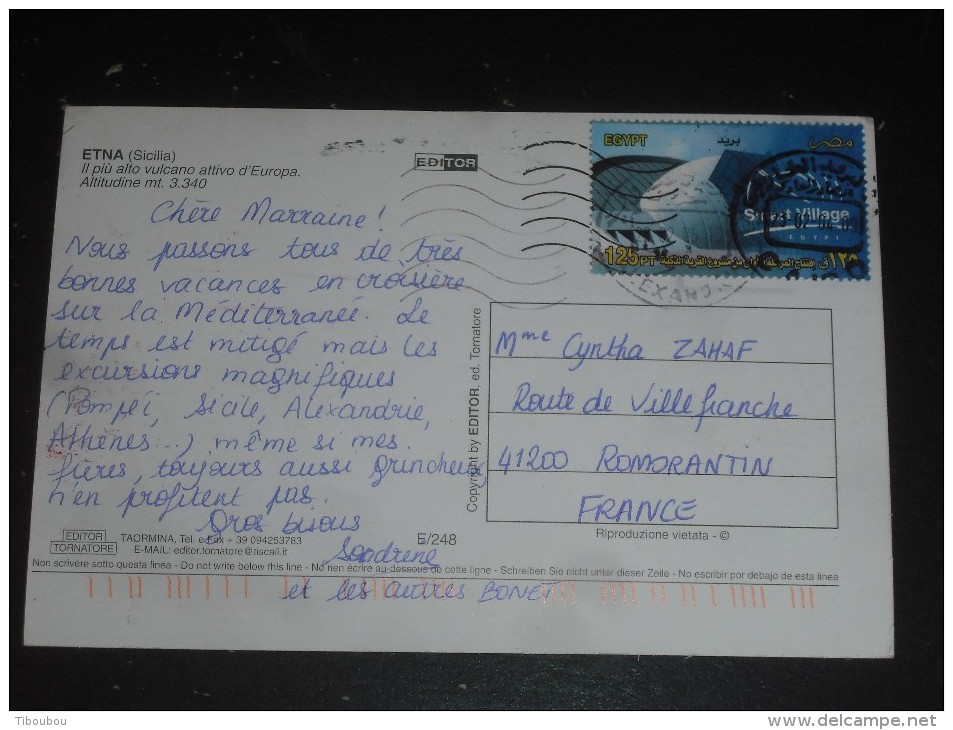 ETNA (Sicilia)
Il più alto vulcano attivo d'Europa.
Altitudine mt. 3.340
EDITOR
EGYPT
بريد
مصر
Smart Village
EGYPT
125 PT
Chère Marraine!
Nous passons tous de très
bonnes vacances en croisière
sur la Méditerranée. Le
temps est mitigé mais les
excursions magnifiques
(Pompéi, Sicile, Alexandrie,
Athènes...) même si mes
frères, toujours aussi grincheux
n'en profitent pas.
Gros bisous
Sandrine
et les autres BONET
Copyright by EDITOR, ed. Tornatore
Mme Cyntha ZAHAF
Route de Villefranche
41200 ROMORANTIN
FRANCE
Riproduzione vietata - ©
EDITOR
TORNATORE
TAORMINA, Tel. e Fax + 39 094253783
E-MAIL: editor.tornatore@tiscali.it
E/248
Non scrivere sotto questa linea - Do not write below this line - Ne rien écrire au-dessous de cette ligne - Schreiben Sie nicht unter dieser Zeile - No escribir por debajo de esta linea
Tiboubou
www.delcampe.net